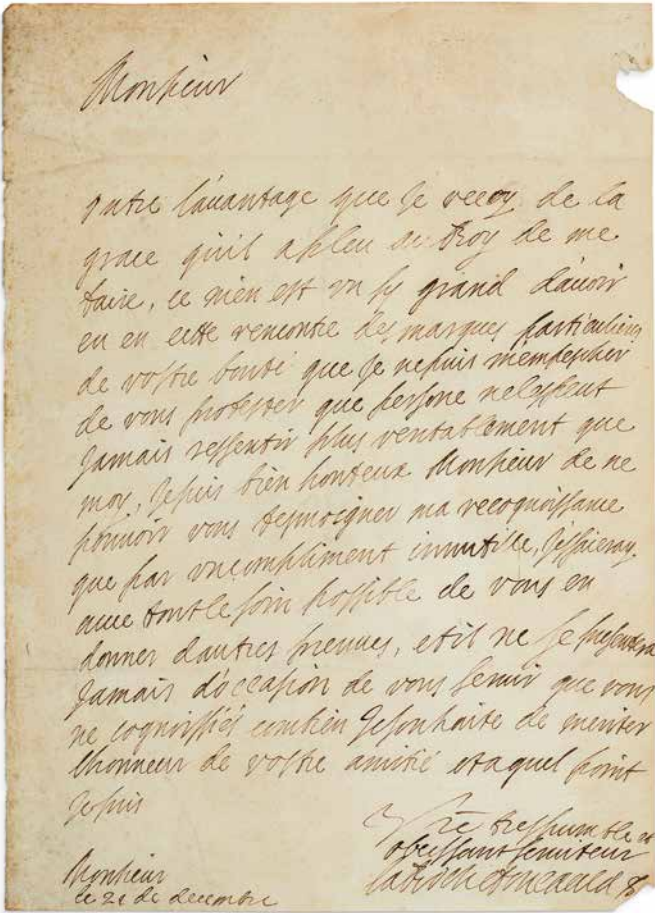 Monsieur
outre lauantage que Je recoy de la
grace quil a pleu au Roy de me
faire, ce mien est vn sy grand dauoir
eu en cette rencontre des marques particulieres
de vostre bonté que Je nepuis mempescher
de vous protester que persone nelespeut
Jamais ressentir plus veritablement que
moy, Jesuis bien honteux Monsieur de ne
pouuoir vous tesmoigner ma recognoissance
que par vncompliment innutille, Jessaieray
auec toutlesoin possible de vous en
donner dautres preuues, etil ne se presentera
Jamais doccasion de vous seruir que vous
ne cognoissiés combien Jesouhaite de meriter
lhonneur de vostre amitié etaquel point
Jesuis
Vre treshumble et
obeissant seruiteur
Monsieur
Larochefoucauld
le 21 de decembre